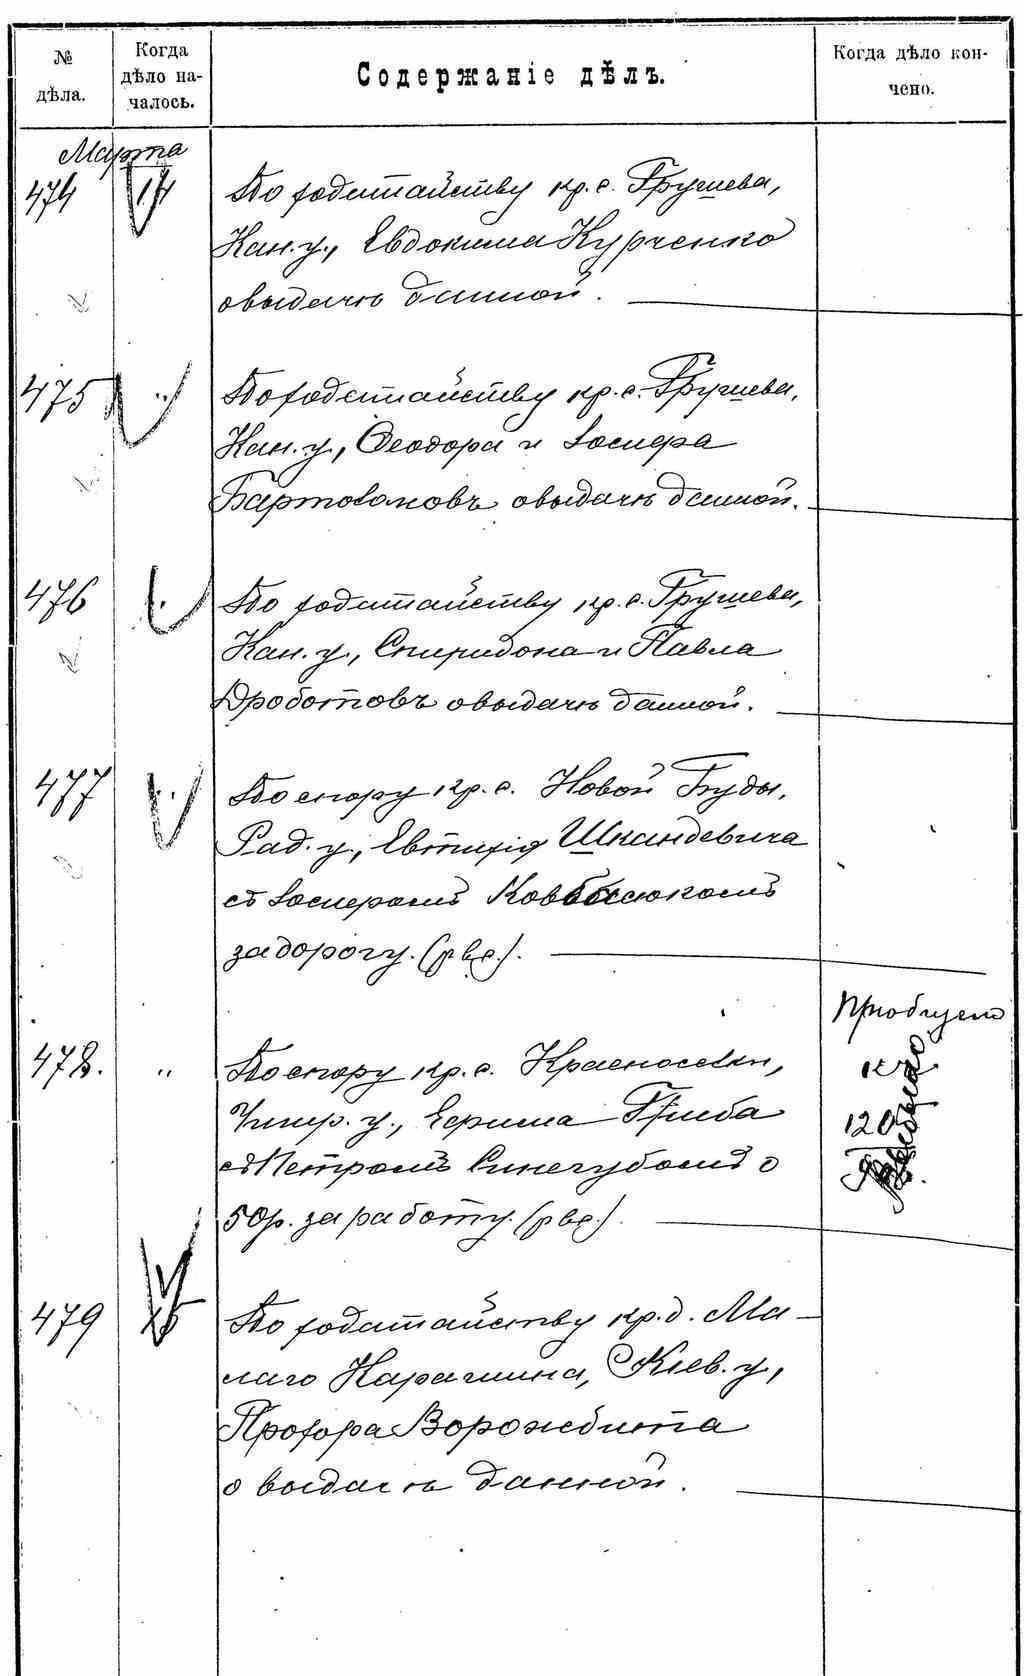 № дѣла.
Когда дѣло на-
чалось.
Содержаніе дѣлъ.
Когда дѣло кон-
чено.
Марта
474 14 По ходатайству кр. с. Грушева,
Кан. у., Евдокима Курченко
о выдачѣ данной.
475 " По ходатайству кр. с. Грушева,
Кан. у., Ѳеодора и Іосифа
Бартоломовъ о выдачѣ данной.
476 " По ходатайству кр. с. Грушева,
Кан. у., Спиридона и Павла
Дроботовъ о выдачѣ данной.
477 " По спору кр. с. Новой Буды,
Рад. у., Евтихія Шкандевича
съ Іосифомъ
за дорогу. (рвс.).
Пріобщено
478. " По спору кр. с. Красносѣлки,
къ
Чигир. у., Ефима Гриба
120
съ Петромъ Синегубомъ о
50 р. за работу. (рвс.).
479 15 По ходатайству кр. д. Ма-
лаго Карашина, Кіев. у.,
Прохора Ворожбита
о выдачѣ данной.